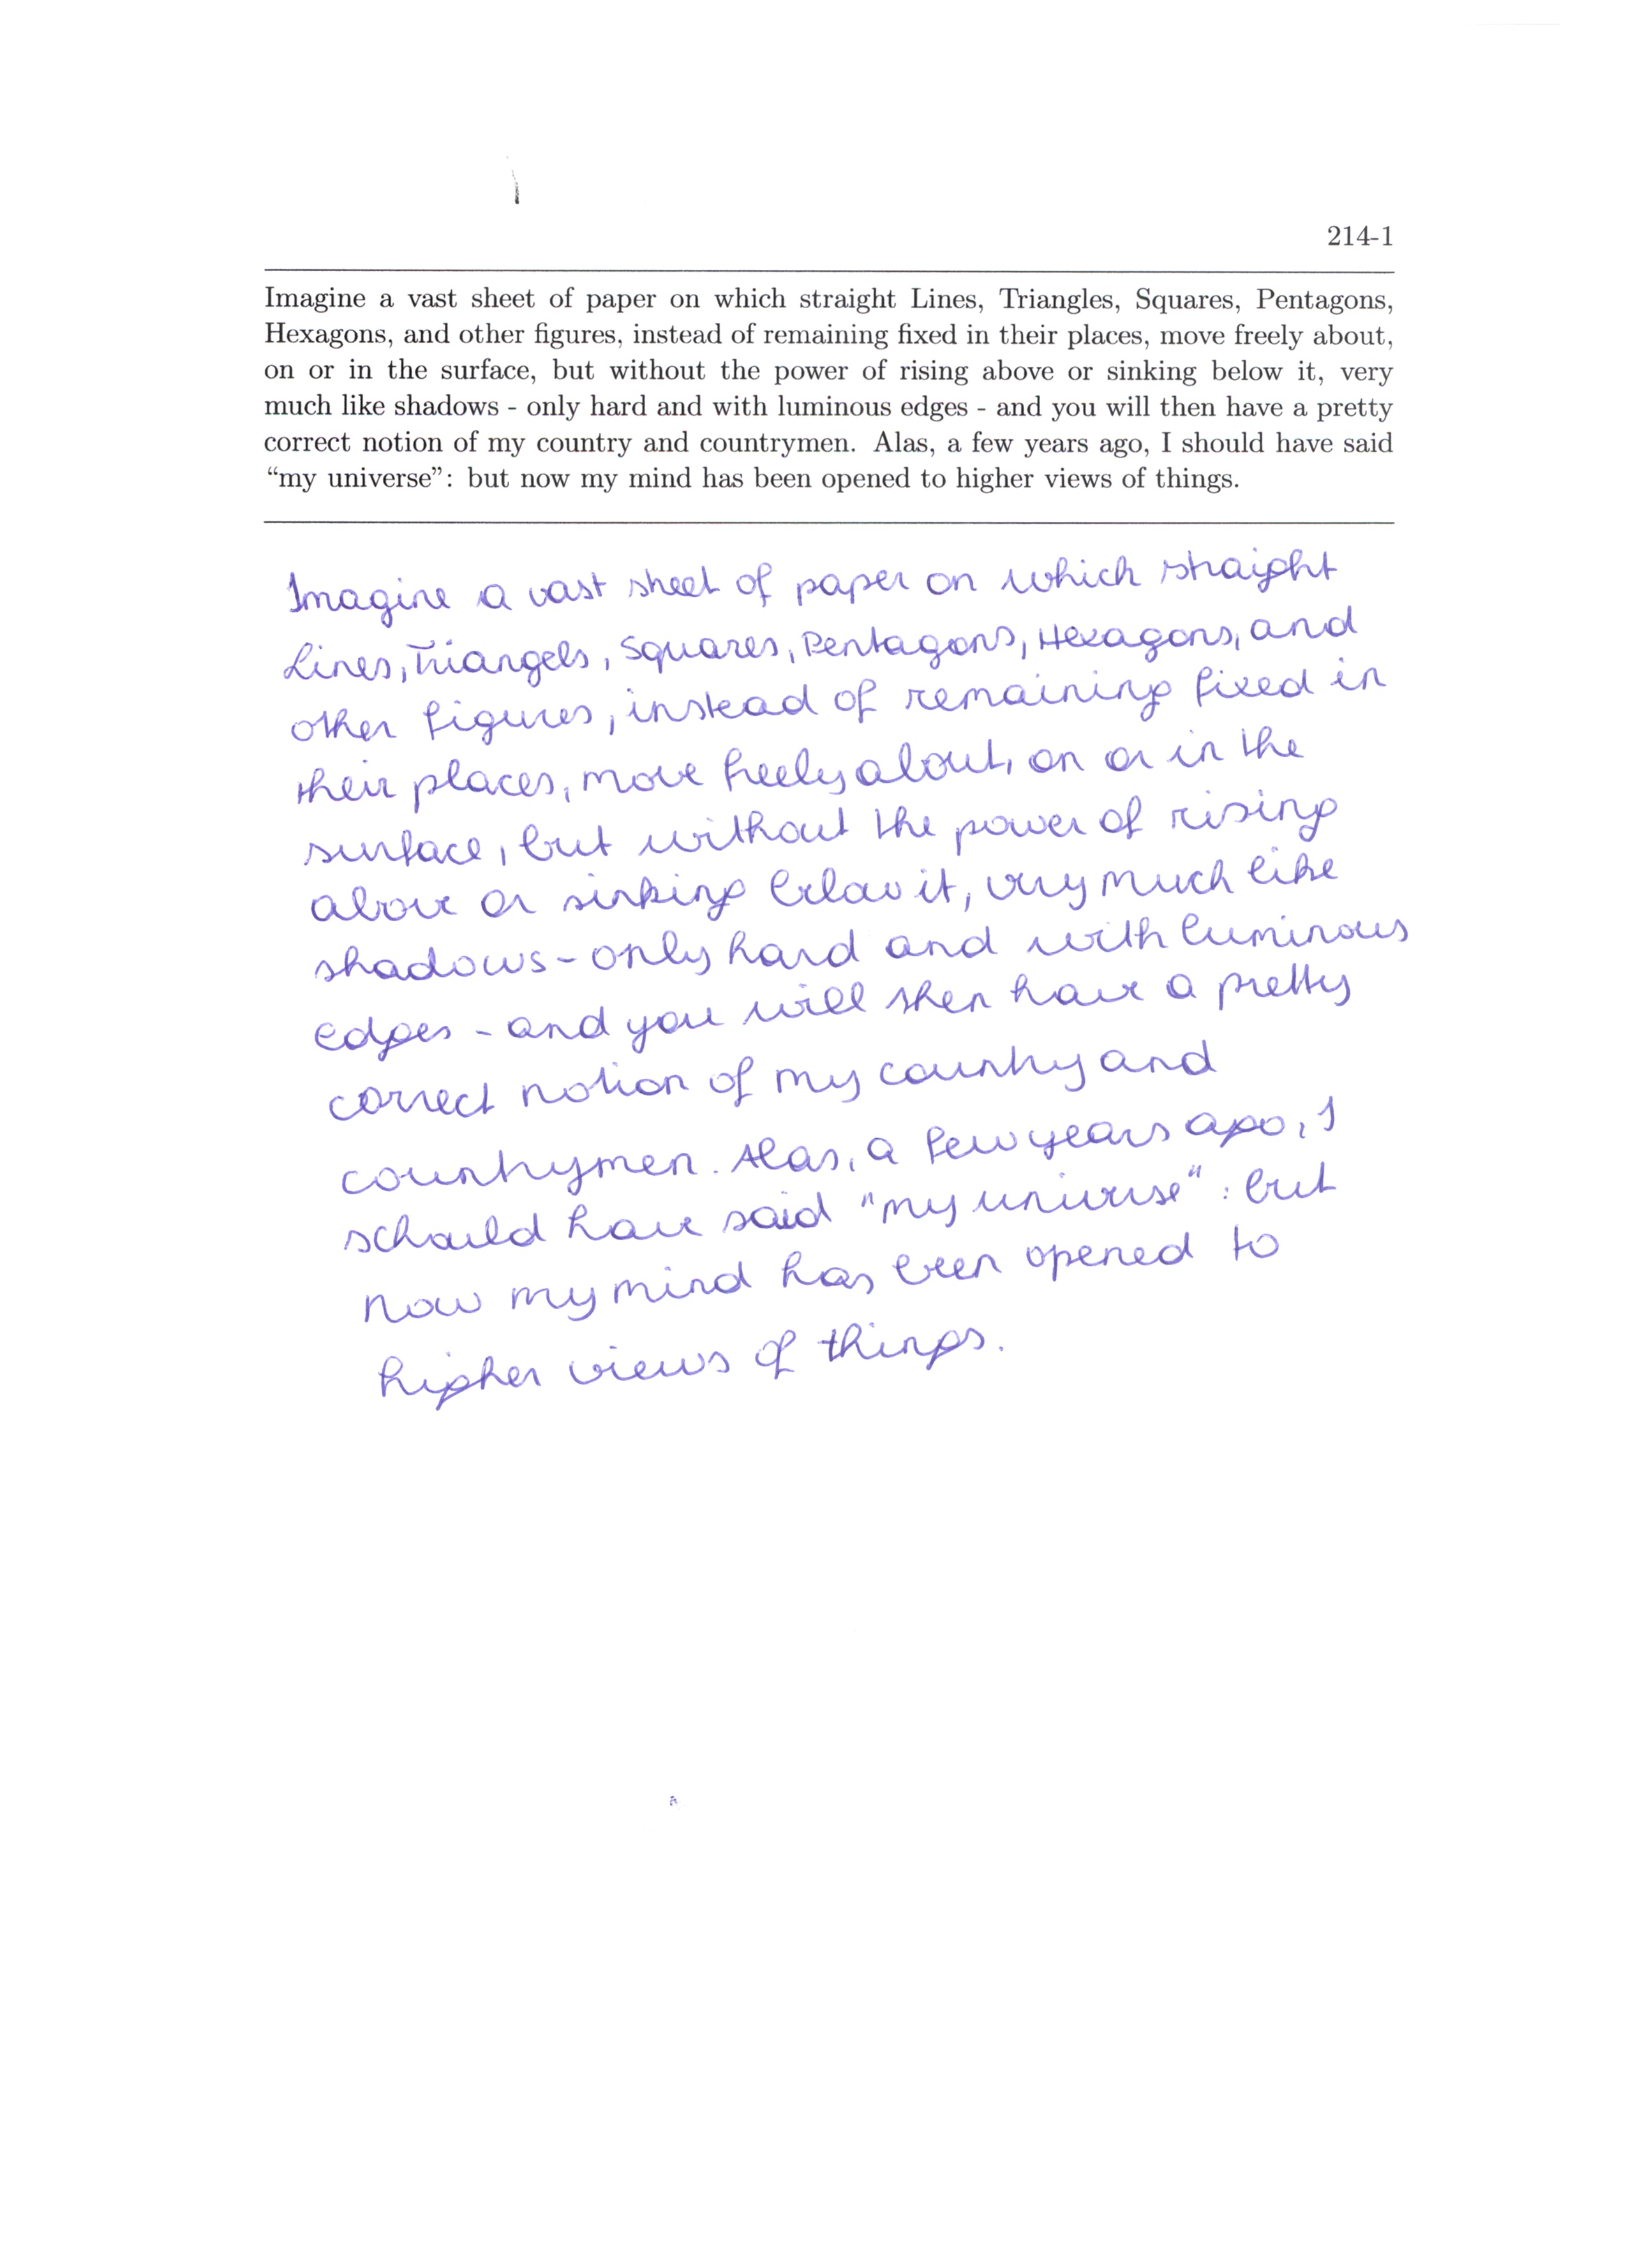 214-1
Imagine a vast sheet of paper on which straight Lines, Triangles, Squares, Pentagons,
Hexagons, and other figures, instead of remaining fixed in their places, move freely about,
on or in the surface, but without the power of rising above or sinking below it, very
much like shadows - only hard and with luminous edges - and you will then have a pretty
correct notion of my country and countrymen. Alas, a few years ago, I should have said
“my universe”: but now my mind has been opened to higher views of things.
Imagine a vast sheet of paper on which straight
Lines, Triangels, Squares, Pentagons, Hexagons, and
other figures, instead of remaining fixed in
their places, move freely about, on or in the
surface, but without the power of rising
above or sinking below it, very much like
shadows - only hard and with luminous
edges - and you will then have a pretty
correct notion of my country and
countrymen. Alas, a few years ago, I
schould have said "my universe": but
now my mind has been opened to
higher views of things.